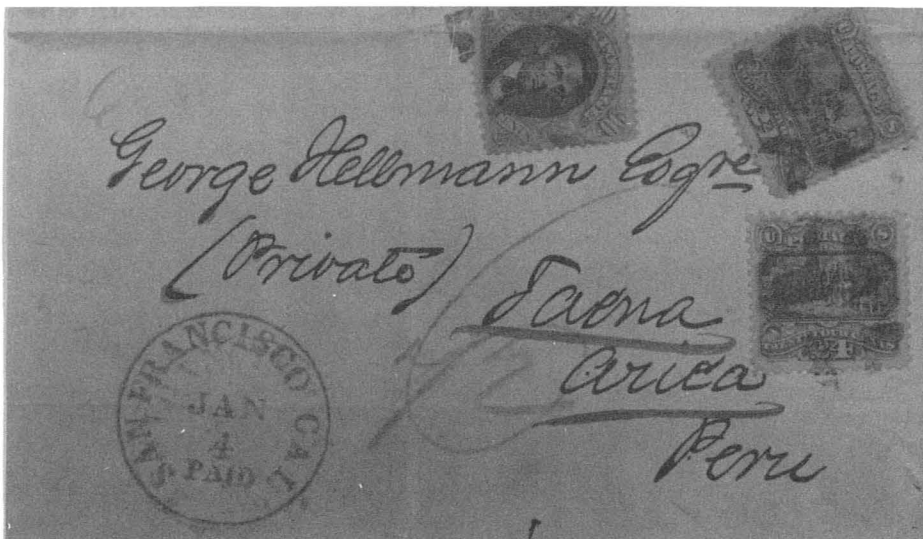 George Hellmann Esqre
(Privato)
Tacna
Arica
Peru
SAN FRANCISCO CAL.
JAN
4
PAID